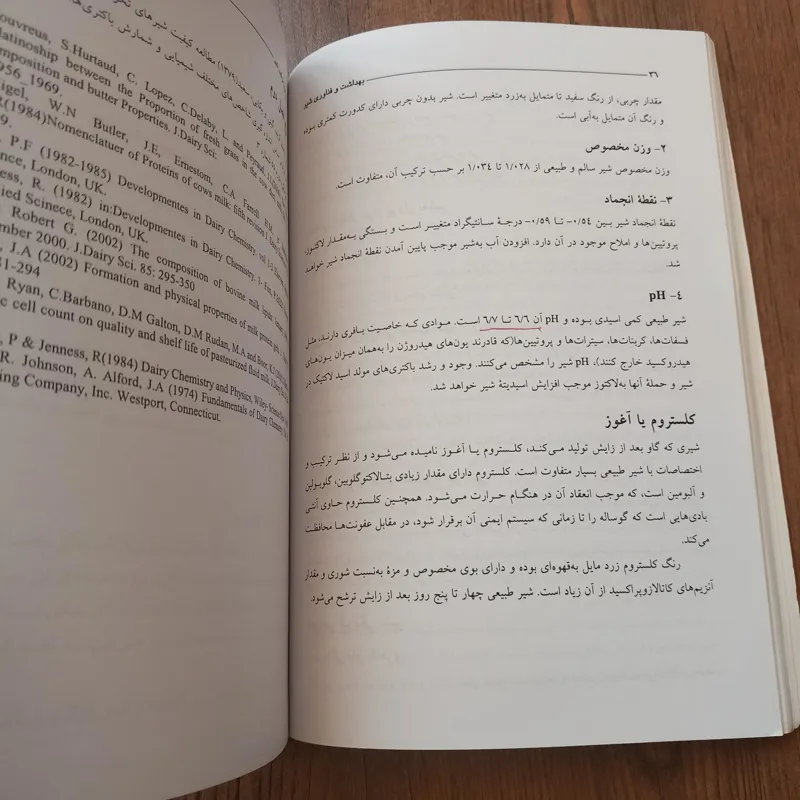 ٣٦ بهداشت و فناوری شیر
مقدار چربی، از رنگ سفید تا متمایل به‌زرد متغییر است. شیر بدون چربی دارای کدورت کمتری بوده
و رنگ آن متمایل به‌آبی است.
٢- وزن مخصوص
وزن مخصوص شیر سالم و طبیعی از ١/٠٢٨ تا ١/٠٣٤ بر حسب ترکیب آن، متفاوت است.
٣- نقطهٔ انجماد
نقطهٔ انجماد شیر بین ٠/٥٤- تا ٠/٥٩- درجهٔ سانتیگراد متغییر است و بستگی به‌مقدار لاکتوز،
پروتیین‌ها و املاح موجود در آن دارد. افزودن آب به‌شیر موجب پایین آمدن نقطهٔ انجماد شیر خواهد
شد.
٤- pH
شیر طبیعی کمی اسیدی بوده و pH آن ٦/٦ تا ٦/٧ است. موادی که خاصیت بافری دارند، مثل
فسفات‌ها، کربنات‌ها، سیترات‌ها و پروتیین‌ها(که قادرند یون‌های هیدروژن را به‌همان میزان یون‌های
هیدروکسید خارج کنند)، pH شیر را مشخص می‌کنند. وجود و رشد باکتری‌های مولد اسید لاکتیک در
شیر و حملهٔ آنها به‌لاکتوز موجب افزایش اسیدیتهٔ شیر خواهد شد.
کلستروم یا آغوز
شیری که گاو بعد از زایش تولید می‌کند، کلستروم یا آغوز نامیده می‌شود و از نظر ترکیب و
اختصاصات با شیر طبیعی بسیار متفاوت است. کلستروم دارای مقدار زیادی بتالاکتوگلوبین، گلوبولین
و آلبومین است، که موجب انعقاد آن در هنگام حرارت می‌شود. همچنین کلستروم حاوی آنتی
بادی‌هایی است که گوساله را تا زمانی که سیستم ایمنی آن برقرار شود، در مقابل عفونت‌ها محافظت
می‌کند.
رنگ کلستروم زرد مایل به‌قهوه‌ای بوده و دارای بوی مخصوص و مزهٔ به‌نسبت شوری و مقدار
آنزیم‌های کاتالازوپراکسید از آن زیاد است. شیر طبیعی چهار تا پنج روز بعد از زایش ترشح می‌شود.
ouvreus, S.Hurtaud, C. Lopez, C.Delaby, L. and Peyraud,
latinoship between the Proportion of fresh grass in the cow
mposition and butter Properties. J.Dairy Sci:
956_1969.
igel, W.N Butler, J.E, Ernestom, C.A, Farell
R(1984)Nomenclatuer of Proteins of cows milk: fifth revision
9.
P.F (1982-1985) Developmentes in Dairy Chemistry. vol
ence, London, UK.
ess, R. (1982) in:Developmentes in Dairy Chemistry. 1-
lied Scinece, London, UK.
Robert G. (2002) The composition of bovine milk
mber 2000. J.Dairy Sci. 85: 295-350
, J.A (2002) Formation and physical properties of milk protein
81-294
Ryan, C.Barbano, D.M Galton, D.M Rudan, M.A and Boor, K.J
c cell count on quality and shelf life of pasteurized fluid milk
, P & Jenness, R(1984) Dairy Chemistry and Physics, Wiley-
R. Johnson, A. Alford, J.A (1974) Fundamentals of Dairy
ing Company, Inc. Westport, Connecticut.